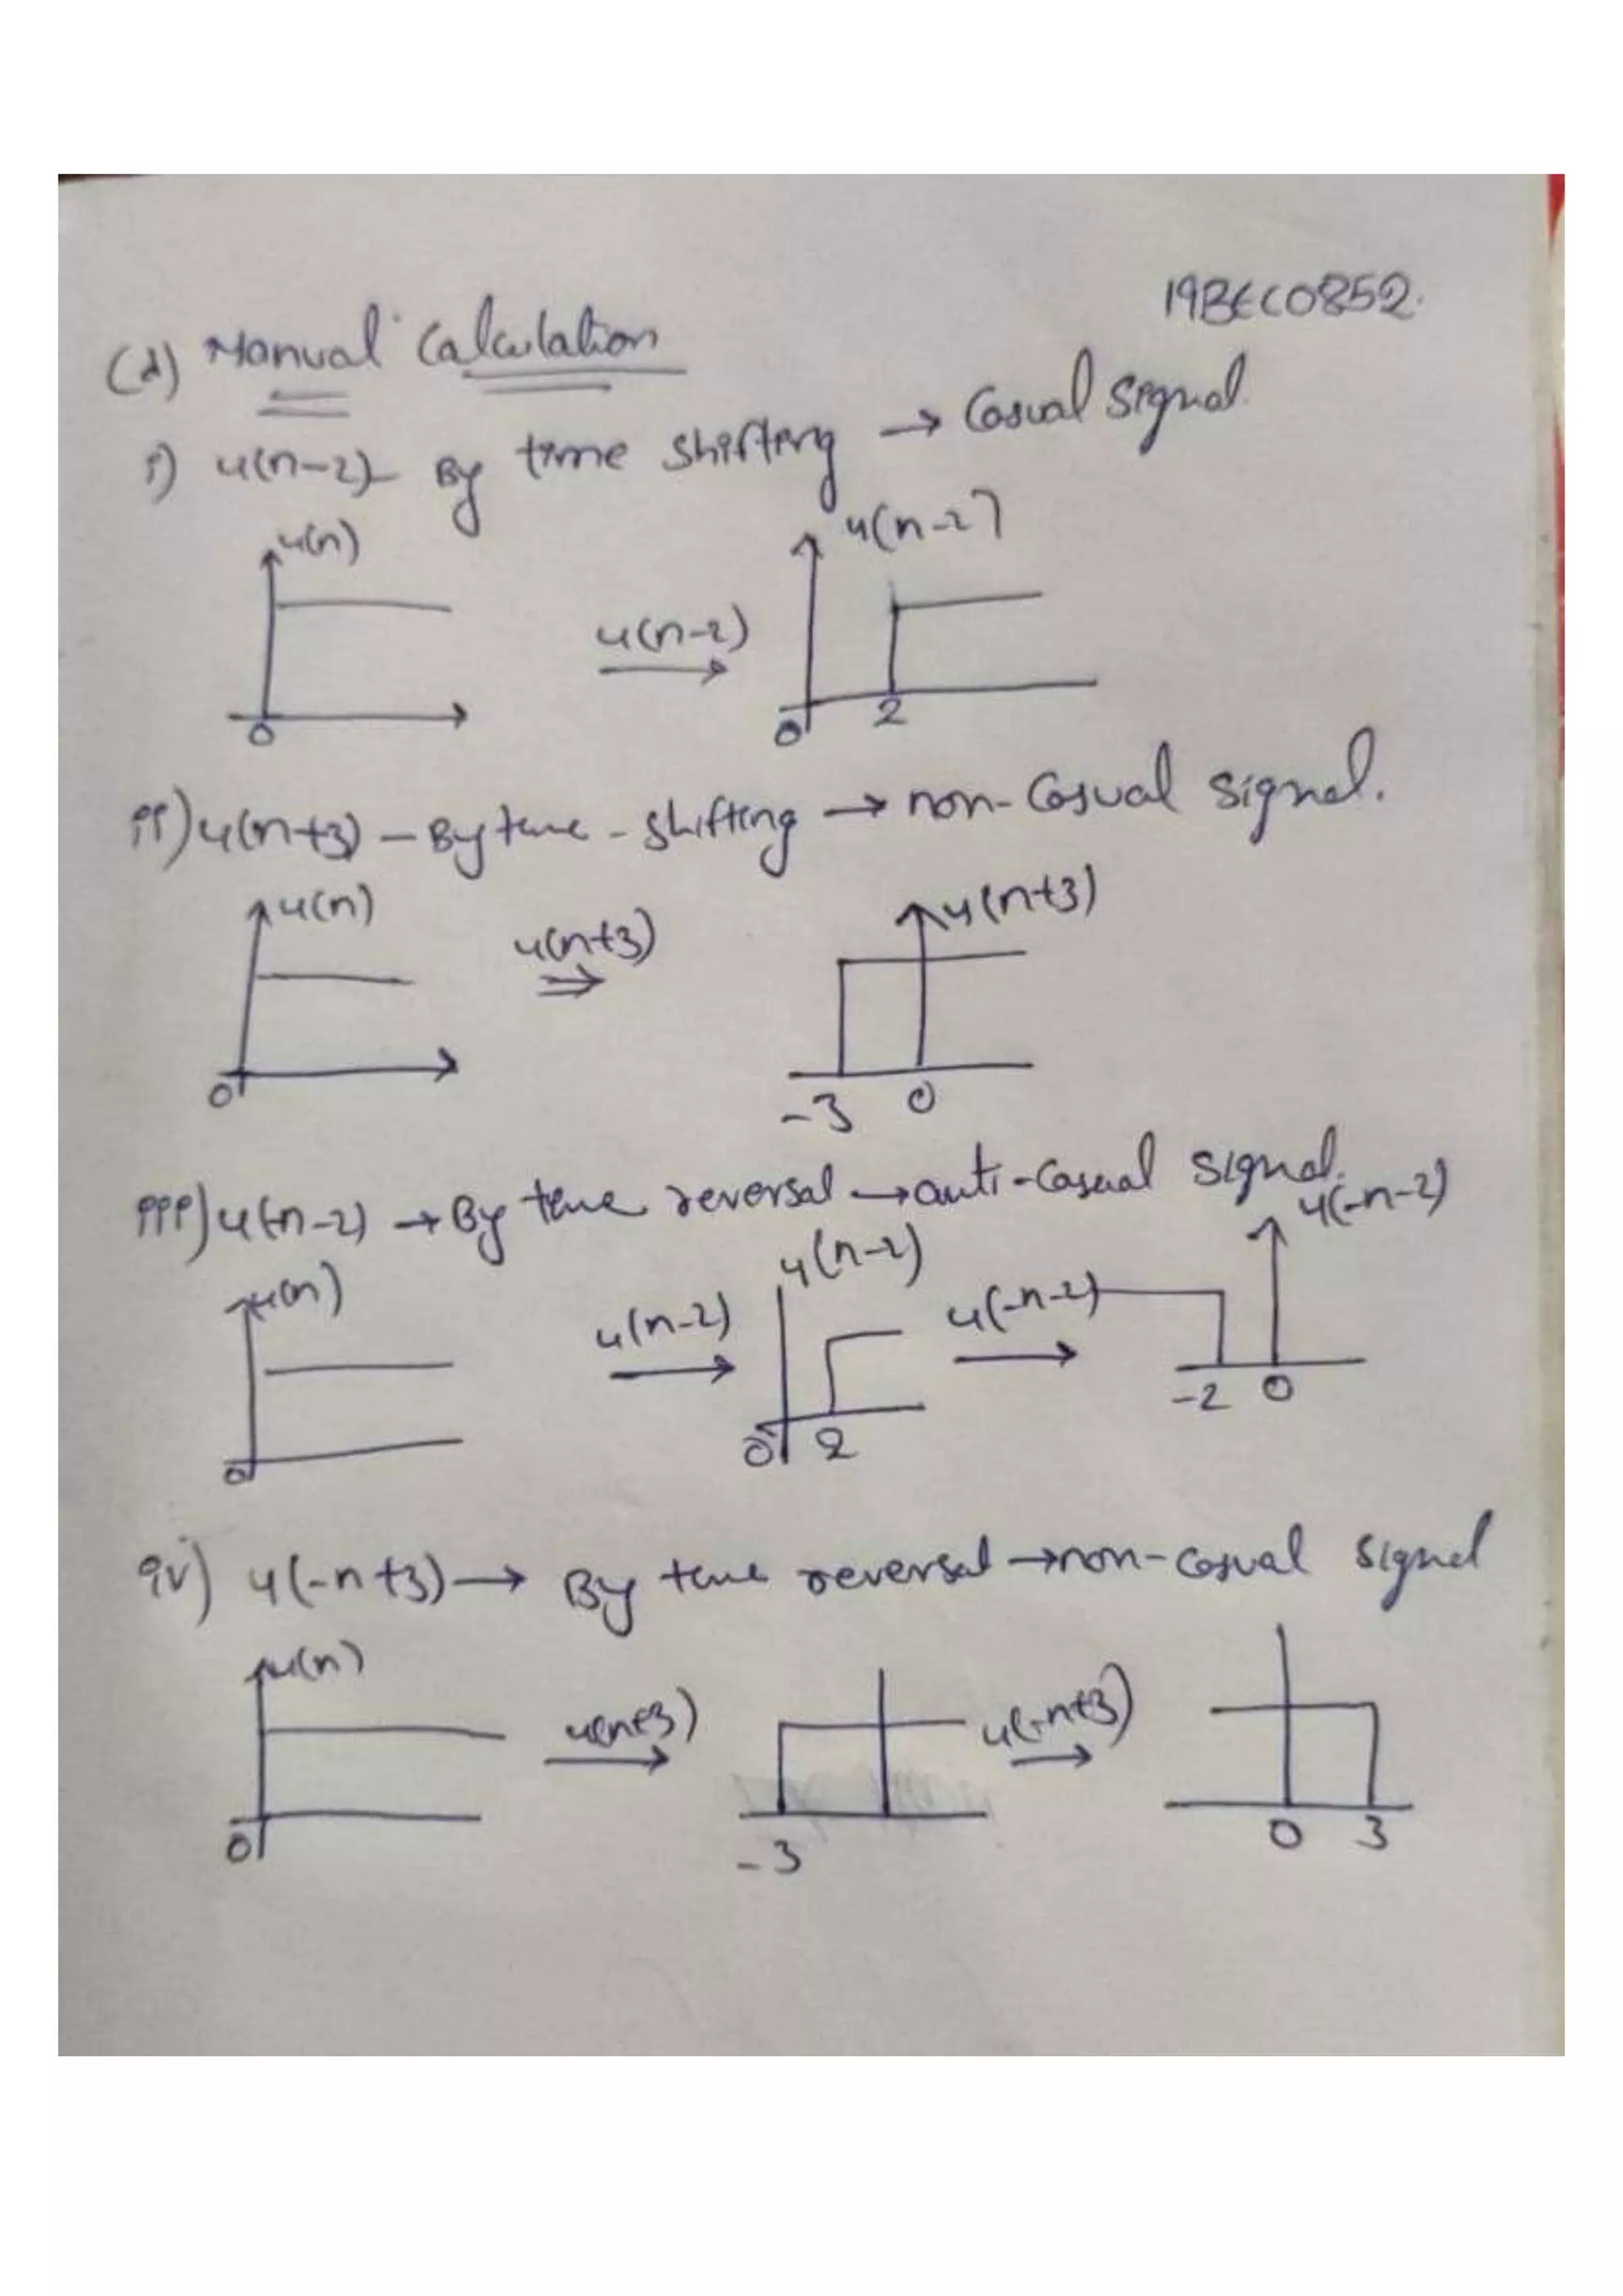 19BEC0852.
(d) Manual Calculation
i) u(n-2)- By time shifting → Casual Signal
u(n)
u(n-2)
u(n-2)
0
0 2
ii) u(n+3) - By time - shifting → non-Casual signal.
u(n)
u(n+3)
u(n+3)
0
-3 0
iii) u(-n-2) → By time reversal → anti-Casual signal.
u(n)
u(n-2)
u(n-2)
u(-n-2)
u(-n-2)
0
0 2
-2 0
iv) u(-n+3) → By time reversal → non-casual signal
u(n)
u(n+3)
u(-n+3)
0
-3
0 3